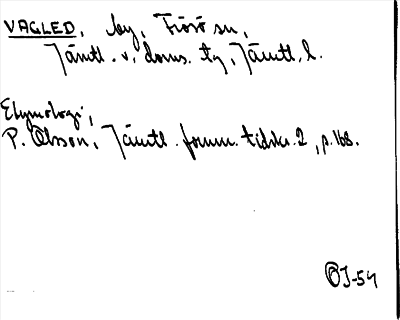 VAGLED, by, Frösö sn,
Jämtl. v. doms. tg, Jämtl. l.
Etymologi;
P. Olsson, Jämtl. fornm. tidskr. 2, p. 168.
OJ-54